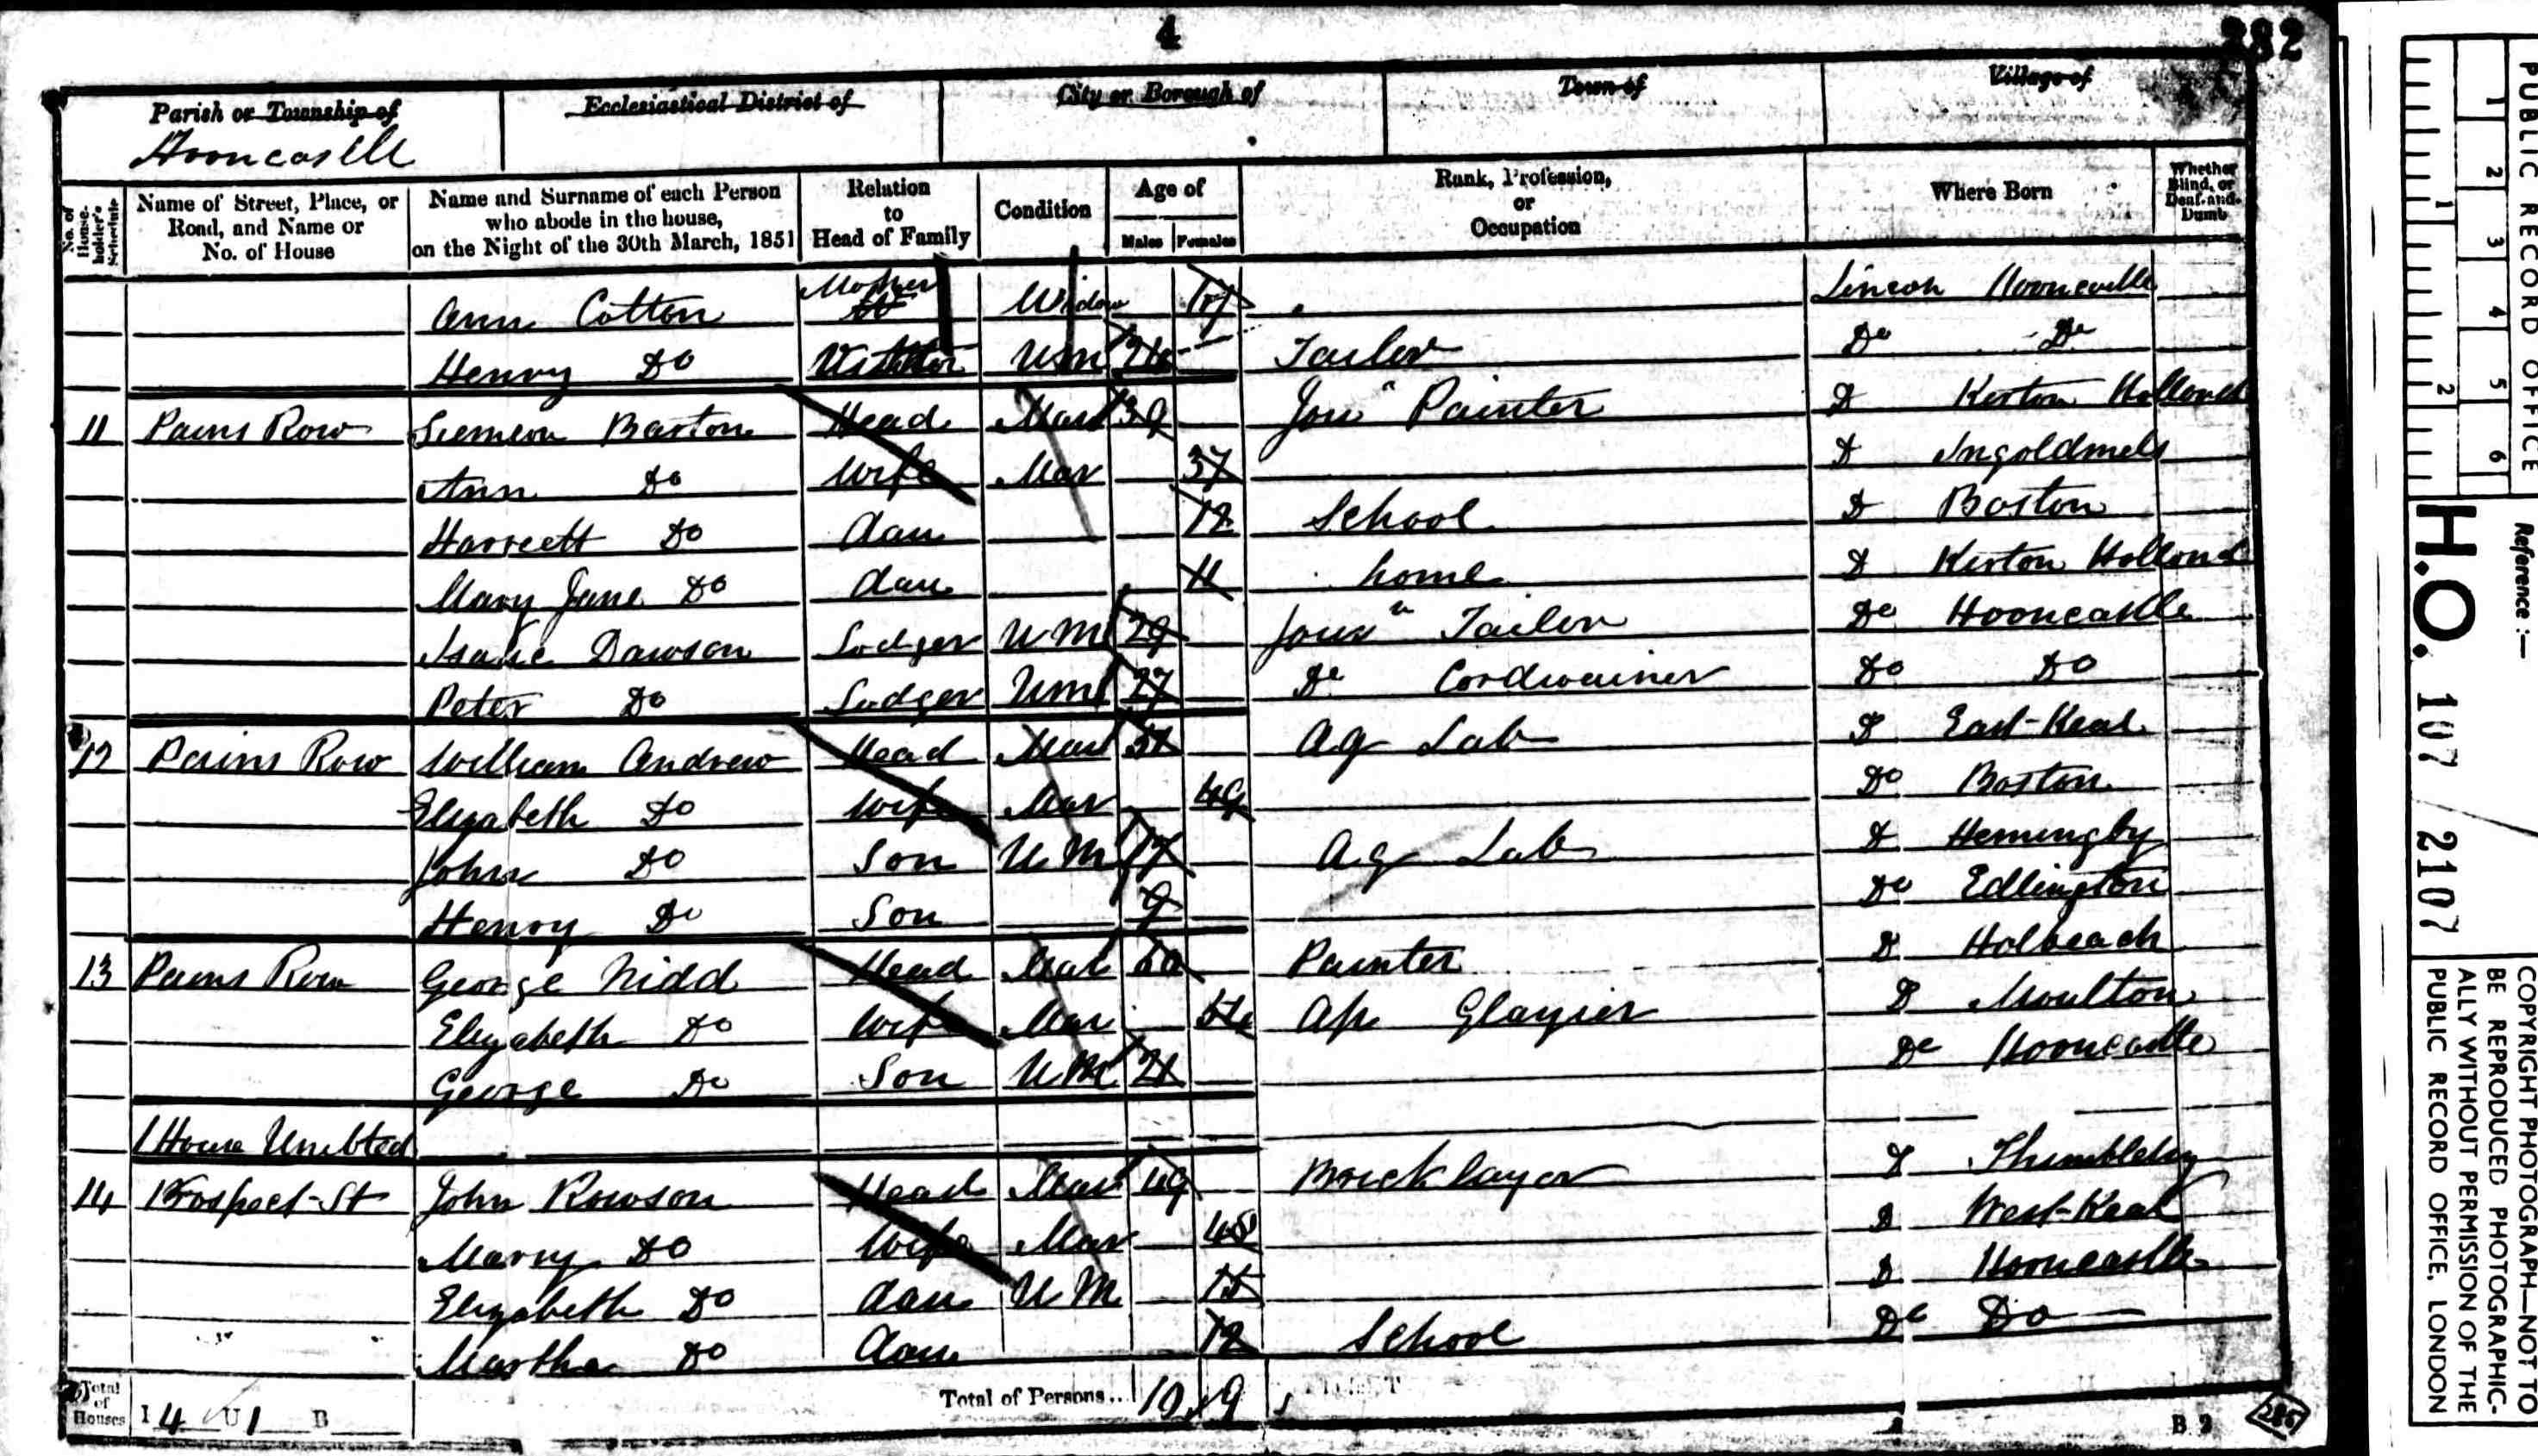 4
282
Parish or Township of
Ecclesiastical District of
City or Borough of
Town of
Village of
Horncastle
No. of House-holder's Schedule
Name of Street, Place, or Road, and Name or No. of House
Name and Surname of each Person who abode in the house, on the Night of the 30th March, 1851
Relation to Head of Family
Condition
Age of
Males Females
Rank, Profession, or Occupation
Where Born
Whether Blind, or Deaf-and-Dumb
Ann Cotton Mother Widow Lincoln Horncastle
Henry Do Visitor UM Tailor Do Do
11 Pains Row Simeon Barton Head Mar 39 Jour Painter D Kirton Holland
Ann Do Wife Mar 37 D Ingoldmels
Harreett Do dau 12 School D Boston
Mary Jane Do dau 11 home D Kirton Holland
Isaac Dawson Lodger UM 29 Jour Tailor Do Horncastle
Peter Do Lodger UM 27 Do Cordwainer Do Do
12 Pains Row William Andrew Head Mar Ag Lab D East-Keal
Elizabeth Do Wife Mar 49 Do Boston
John Do Son UM 17 Ag Lab D Hemingby
Henry Do Son 9 Do Edlington
13 Pains Row George Nidd Head Mar 60 Painter D Holbeach
Elizabeth Do Wife Mar Ap Glazier D Moulton
George Do Son UM 21 Do Horncastle
1 House Unibted
14 Prospect-St John Rowson Head Mar 49 Bricklayer D Thimbleby
Marry Do Wife Mar 48 D West-Keal
Elizabeth Do dau UM 15 D Horncastle
Martha Do dau 12 School Do Do
Total of Houses I 4 U 1 B
Total of Persons... 10 9
B 2
286
PUBLIC RECORD OFFICE
1 2 3 4 5 6
1 2
Reference :—
H.O. 107 / 2107
COPYRIGHT PHOTOGRAPH—NOT TO
BE REPRODUCED PHOTOGRAPHIC-
ALLY WITHOUT PERMISSION OF THE
PUBLIC RECORD OFFICE, LONDON